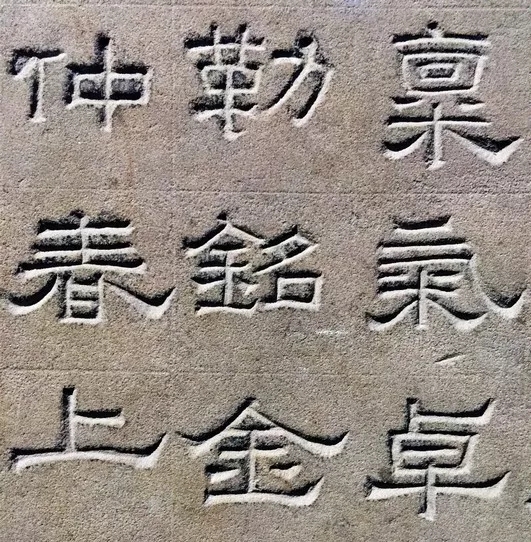 稟氣卓
勒銘金
仲春上